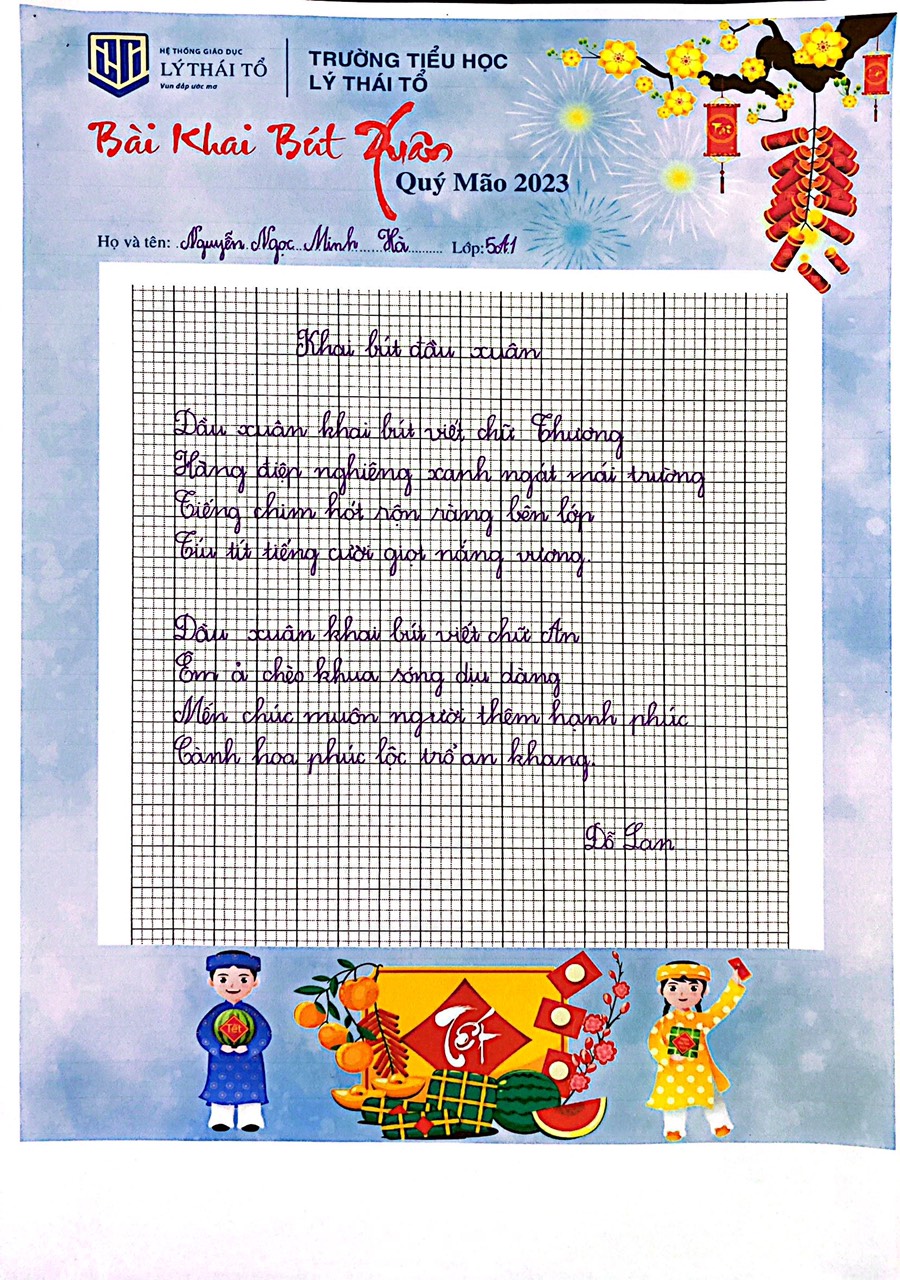 HỆ THỐNG GIÁO DỤC
LÝ THÁI TỔ
Vun đắp ước mơ
TRƯỜNG TIỂU HỌC
LÝ THÁI TỔ
Bài Khai Bút Xuân
Quý Mão 2023
Họ và tên: Nguyễn Ngọc Minh Hà Lớp: 5A1
Tết
Khai bút đầu xuân
Đầu xuân khai bút viết chữ Thương
Hàng điệp nghiêng xanh ngát mái trường
Tiếng chim hót rộn ràng bên lớp
Tíu tít tiếng cười giọt nắng vương.
Đầu xuân khai bút viết chữ Ân
Êm ả chèo khua sóng dịu dàng
Mến chúc muôn người thêm hạnh phúc
Cành hoa phúc lộc trổ an khang.
Đỗ Lan
Tết
Tết